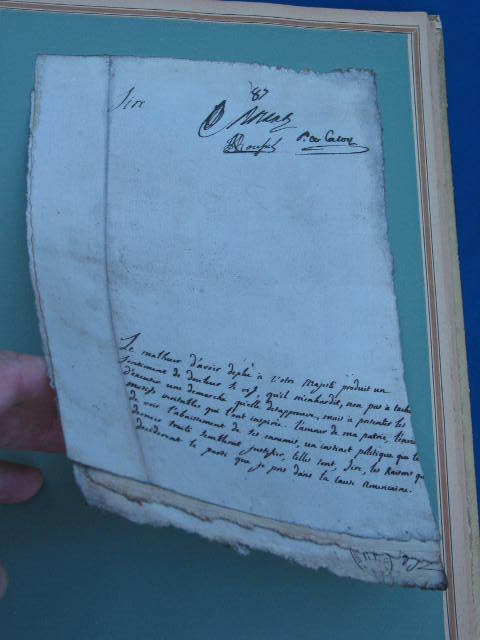 Sire
87
P. de Caton
Le malheur d'avoir déplu à Votre Majesté produit un
sentiment de douleur si vif, qu'il m'enhardit, non pas à
d'excuter une demarche qu'elle desapprouve, mais à présenter les
motifs veritables qui l'ont inspirée. l'amour de ma patrie,
de voir l'abaissement de ses ennemis, un instinct politique que le
dernier traité sembloit justifier, telles sont, Sire, les Raisons qui
deciderent le parti que je pris dans la cause Americaine.